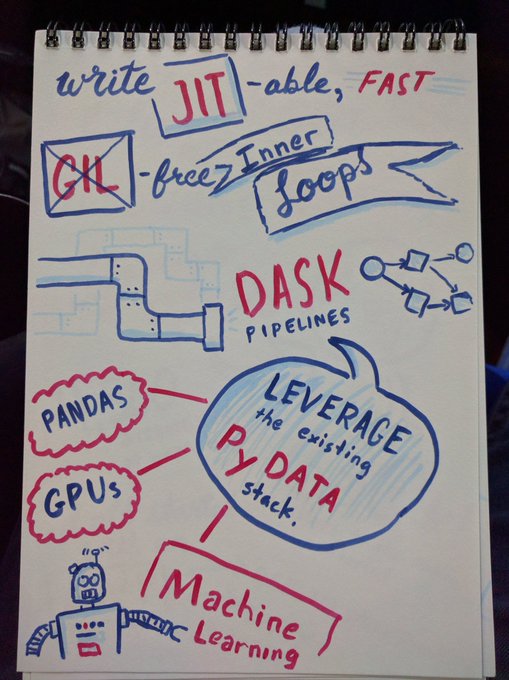 write JIT-able, FAST
GIL-free Inner
Loops
DASK
PIPELINES
PANDAS
GPUs
LEVERAGE
the existing
PyDATA
stack.
Machine
Learning